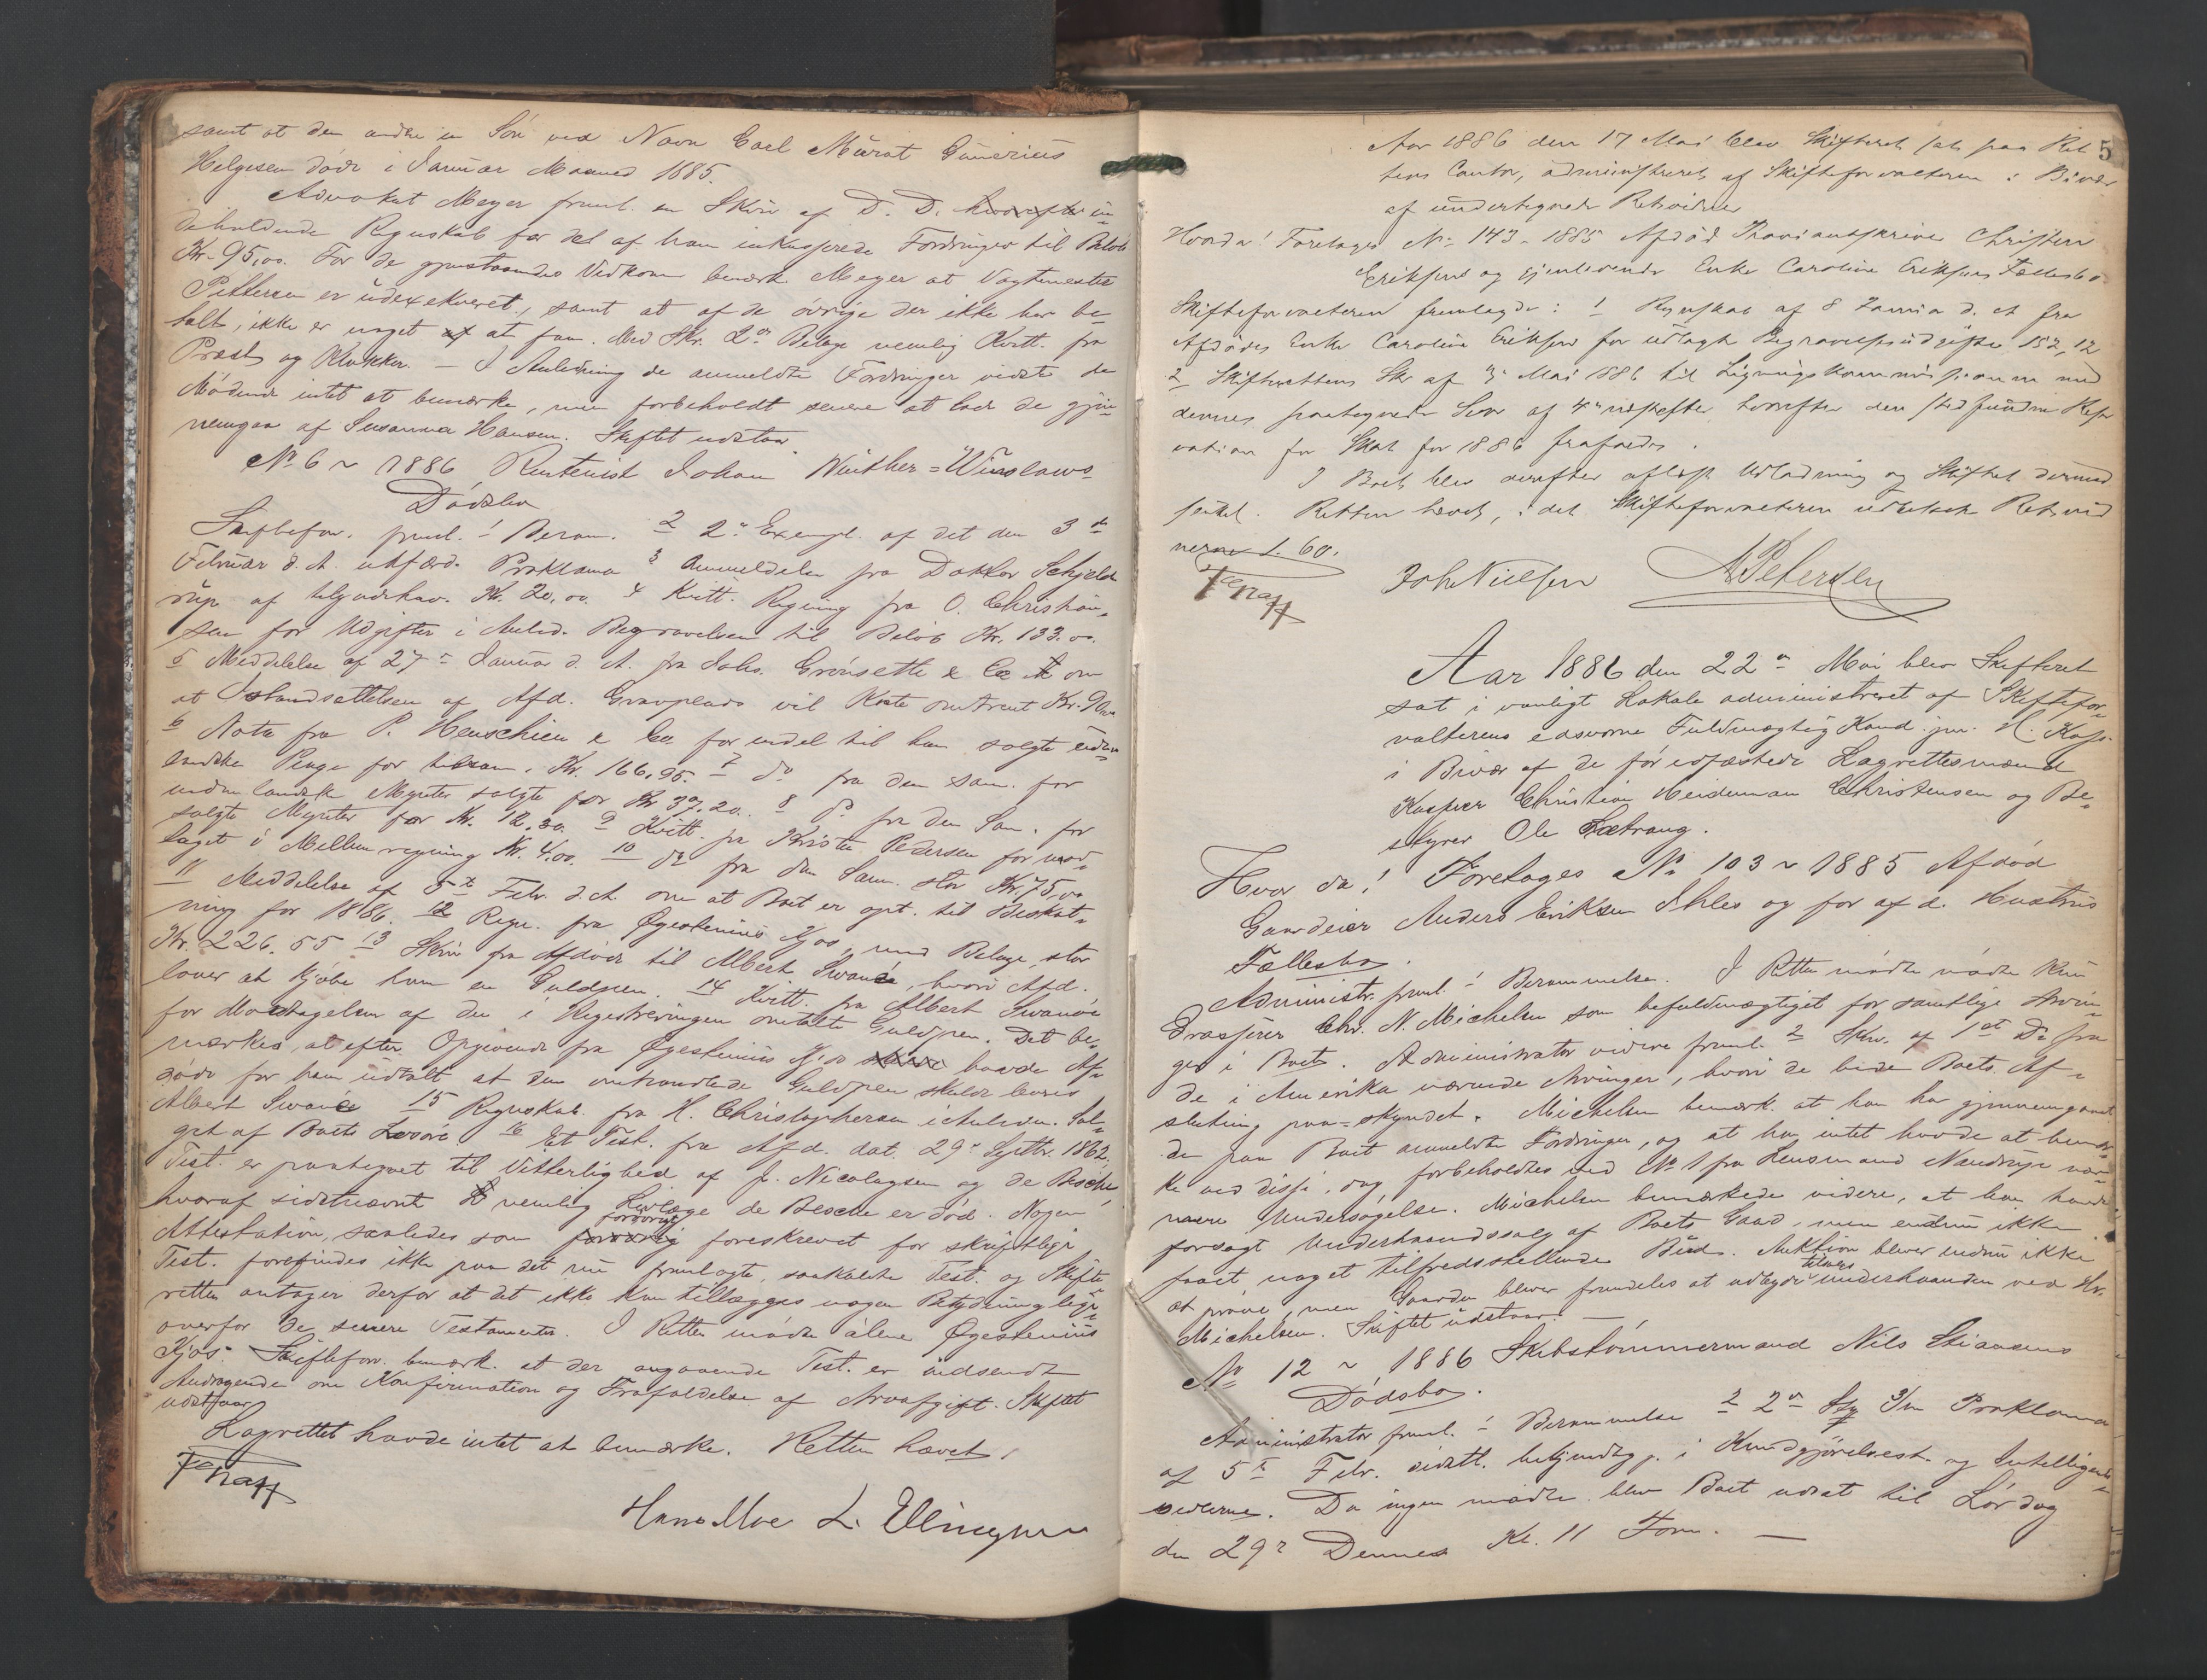 samt at den andre en Søn ved Navn Carl Mürat Günerius
Helgesen døde i Januar Maaned 1885.
Advokat Meyer freml. en Skriv. af D. D. hvorefter in
deholdende Regnskab for del af ham inkasserede Fordringer til Beløb
Kr. 95,00. For de gjenstaaendes Vedkom. bemærk. Meyer at Vagtmester
Pettersen er udexekveret, samt at af de øvrige der ikke har be-
talt, ikke er noget af at faa. Med Skr. 2de Bilage nemlig Kvitt. fra
Præst og Klokker. — I Anledning de anmeldte Fordringer vidste de
Mødende intet at bemærke, men forbeholdt senere at lade de gjen-
nemgaa af Susanna Hansen. Skiftet udstaar
No 6 ~ 1886 Rentenist Johan Winther=Winslows
Dødsbo
Skiftefor. freml. 1 Beram. 2 2 Exempl. af det den 3de
Februar d. A. udfærd. Proklama 3 Anmeldelse fra Doktor Schjeld
rup af tilgodehav. Kr. 20,00. 4 Kvitt. Regning fra O. Christian-
sen for Udgifter i Anled. Begravelsen til Beløb Kr. 133.00.
5 Meddelelse af 27 Januar d. A. fra Johs. Grønseth & Co om
at Istandsættelsen af Afd. Gravplads vil Koste omtrent Kr. 90,00
6 Nota fra P. Heuschien & Co. for endel til ham solgte uden
landske Penge for tilsam. Kr. 166,95. 7 do fra den sam. for
udenlandske Mynter solgte for Kr 37,20. 8 do fra den Sam. for
solgte Mynter for Kr. 12,30. 9 Kvitt. fra Kristen Pedersen for mod-
taget i Mellemregning Kr. 4,00. 10 do fra den Sam. stor Kr. 75,00
11 Meddelelse af 5te Febr. d. A. om at Boet er opt. til Beskat-
ning for 1886. 12 Regn. fra Øgestenius Kjos, med Bilage, stor
Kr. 226.55 13 Skriv fra Afdøde til Albert Swanøe, hvori Afd.
lover at kjøbe ham en Guldpen. 14 Kvitt. fra Albert Swanøe
for Modtagelsen af den i Registreringen omtalte Guldpen. Det be-
mærkes, at efter Opgivende fra Øgestenius Kjos havde Af-
døde for ham udtalt at den omhandlede Guldpen skulde leveres
Albert Swanøe 15 Regnskab fra H. Christophersen i Anledn. Sal-
get af Boets Løsøre 16 Et Test. fra Afd. dat. 29 Septbr. 1862.
Test. er paategnet til Vitterlighed af J. Nicolaysen og de Besche
hvoraf sidstnævnte nemlig Korlæge de Besche er død. Nogen
forøvrigt
Attestation, saaledes som forøvrig foreskrevet for skriftlige
Test. forefindes ikke paa det nu fremlagte, saakaldte Test. og Skifte-
retten antager derfor at det ikke kan tillægges nogen Betydning lige-
overfor de senere Testamenter. I Retten mødte alene Øgestenius
Kjos. Skiftefor. bemærk. at der angaaende Test. er indsendt
Andragende om Konfirmation og Frafaldelse af Arveafgift. Skiftet
udstaar
Lagrettet havde intet at bemærke. Retten hævet.
Hans Moe L. Ellingsen
5
Aar 1886 den 17 Mai blev Skifteret sat paa Ret
tens Contor, administreret af Skifteforvalteren i Bivær
af undertegnede Retsvidner
Hvorda! Foretages No 143 - 1885 Afdød Proviantskriver Christern
Eriksens og gjenlevende Enke Caroline Eriksens Fællesbo
Skifteforvalteren fremlagde: 1 Regnskab af 8 Januar d. A. fra
Afdødes Enke Caroline Eriksen for udlagte Begravelsesudgifter 152,12
2 Skifterettens Skr. af 3 Mai 1886 til Ligningskommissionen med
dennes paategnede Svar af 4 næstefter, hvorefter den stedfundne Reser
vation for Skat for 1886 frafaldes.
I Boet blev derefter aflagt Udlodning og Skiftet dermed
sluttet. Retten hævet, idet Skifteforvalteren udbetalte Retsvid
nerne 1.60.
Joh Nielsen A Petersen
Aar 1886 den 22 Mai blev Skifteret
sat i vanligt Lokale administreret af Skiftefor-
valterens edsvorne Fuldmægtig Kand. jur. H. Kass.
i Bivær af de før edfæstede Lagrettesmænd
Kasper Christian Heideman Christensen og Be-
styrer Ole Sætrang.
Hvor da! Foretages No 103 ~ 1885 Afdød
Gaardeier Anders Eriksen Ihles og før afd. Hustrus
Fællesbo.
Administr. freml. 1 Berammelse. I Retten mødte mødte Kun
Drasjerer Chr. N. Michelsen som befuldmægtiget for samtlige Arvin-
ger i Boet. Administrator videre freml. 2 Skr. af 1st Ds fra
de i Amerika værende Arvinger, hvori de bede Boets Af-
slutning paa-skyndet. Michelsen bemærk. at han har gjennemgaaet
de paa Boet anmeldte Fordringer, og at han intet havde at bemær-
ke ved disse, dog forbeholdtes ved No 1 fra Lensmand Nandrup nær-
mere Undersøgelse. Michelsen bemærkede videre, at han havde
forsøgt Underhaandssalg af Boets Gaard, men endnu ikke
faaet noget tilfredsstillende Bud. Auktion bliver endnu ikke
tilsalgs
at prøve, men Gaarden bliver fremdeles at udbyde underhaanden ved Hr.
Michelsen. Skiftet udstaar. —
No 12 ~ 1886 Skibstømmermand Nils Stiansens
Dødsbo.
Administrator freml. 1 Berammelse 2 2 Proklama
af 5te Febr. sidstl. bekjendtgj. i Kundgjørelsest. og Intelligens-
sedlerne. Da ingen mødte blev Boet udsat til Lørdag
den 29 Dennes Kl. 11 Form. —